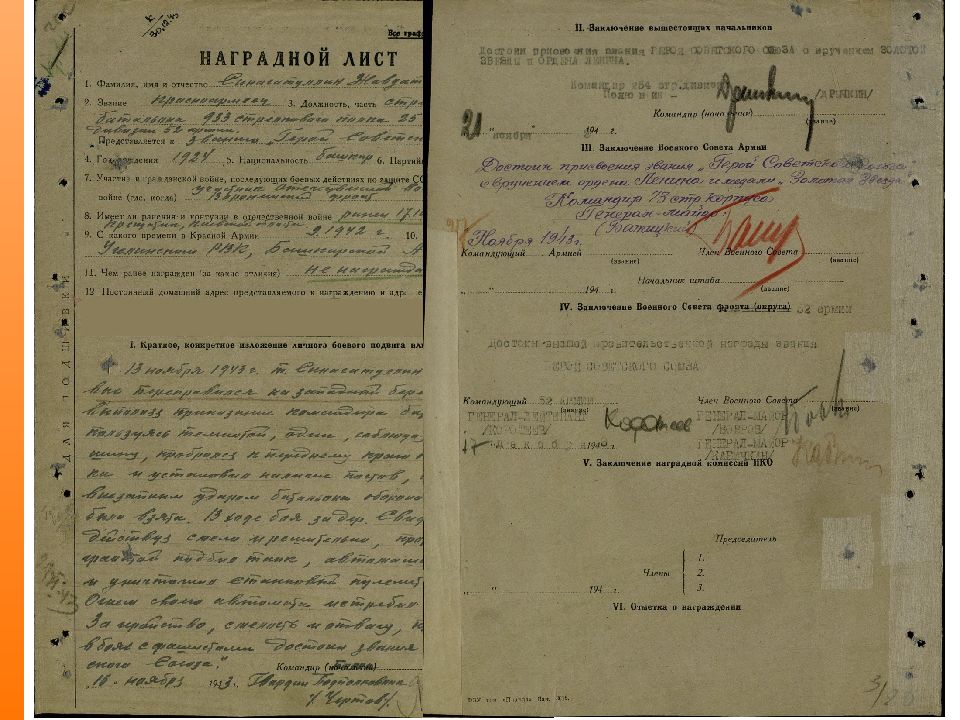 к
30.12.43
Все граф
НАГРАДНОЙ ЛИСТ
1. Фамилия, имя и отчество Синасатуллин
2. Звание Красноармеец 3. Должность, часть стре
батальона 933 стрелкового полка 25
дивизии 52 армии.
Представляется к званию „Герой Советск
4. Год рождения 1924 5. Национальность башкир 6. Партий
7. Участие в гражданской войне, последующих боевых действиях по защите СС
войне (где, когда) участник Отечественной во
Воронежский фронт
8. Имеет ли ранения и контузии в отечественной войне ранен 17.10
9. С какого времени в Красной Армии 9.1942 г. 10.
РВК, Башкирской А
11. Чем ранее награжден (за какие отличия) не награжда
12 Постоянный домашний адрес представляемого к награждению и адрес
I. Краткое, конкретное изложение личного боевого подвига или
13 ноября 1943 г. т. Синасатуллин
вно переправился на западный бер
приказание командира ба
пользуясь темнотой, один, соблюда
шину, пробрался к переднему краю о
ки и установил наличие постов,
внезапным ударом батальона оборона
была взята. В ходе боя за дер. Свид
действуя смело и решительно, про
гранатой подбил танк,
и уничтожил станковый пулемет
Огнем своего автомата истребил
За геройство, смелость и отвагу,
в боях с фашистами достоин звания
ского Союза".
Командир (начальник)
16 ноября 1943 г. Гвардии Подполковник
/Чертов/
ДЛЯ ПОДШИВКИ
II. Заключение вышестоящих начальников
Достоин присвоения звания ГЕРОЯ СОВЕТСКОГО СОЮЗА с вручением ЗОЛОТОЙ
ЗВЕЗДЫ и ОРДЕНА ЛЕНИНА.
Командир 254 стр.дивизии
Полковник -
Командир (начальник)
(звание)
21 „ ноября" 194 г.
III. Заключение Военного Совета Армии
Достоин присвоения звания „Герой Советского Союза"
с вручением ордена Ленина и медали „Золотая Звезда"
Командир 73 стр. корпуса
Генерал-майор
Ноября 1943 г.
Командующий Армией
(звание)
Член Военного Совета
(звание)
Начальник штаба
(звание)
" " 194 г.
IV. Заключение Военного Совета фронта (округа) 52 армии
Достоин высшей правительственной награды звания
ГЕРОЙ СОВЕТСКОГО СОЮЗА
Командующий 52 АРМИИ
(звание)
Член Военного Совета
(звание)
ГЕНЕРАЛ-ЛЕЙТЕНАНТ
/КОРОТЕЕВ/
ГЕНЕРАЛ-МАЙОР
/БОБРОВ/
17 " декабря 194 г.
ГЕНЕРАЛ-МАЙОР
/КАБИЧКИН/
V. Заключение наградной комиссии НКО
Председатель
Члены
1.
2.
3.
" " 194 г.
VI. Отметка о награждении